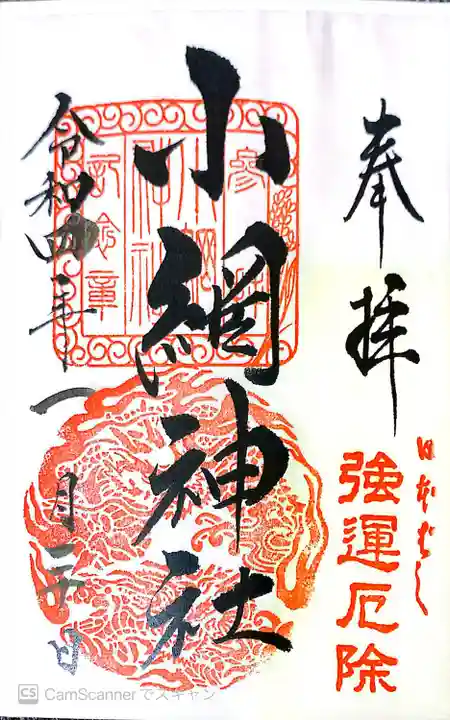 奉拝
日本ばし
強運厄除
小網神社
参拝
小網
神社
記念章
令和四年一月二十日
CS CamScannerでスキャン